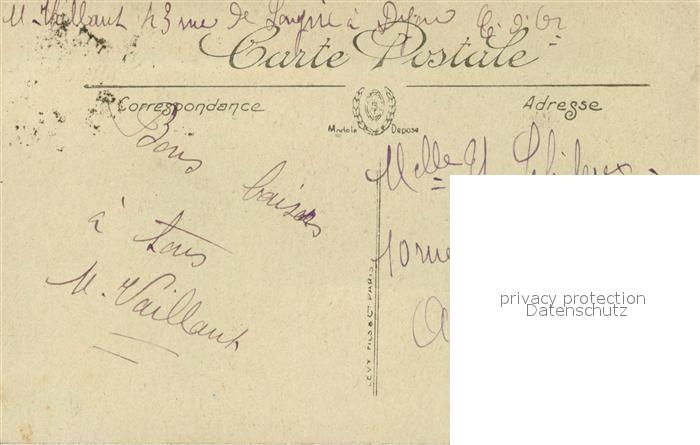 M. Vaillant 23 rue de à Dijon C. d'Or
Carte Postale
Correspondance
Adresse
Modèle Déposé
Bons baisers
à tous
M. Vaillant
Melle
10 rue
LEVY FILS & Cie PARIS
privacy protection
Datenschutz